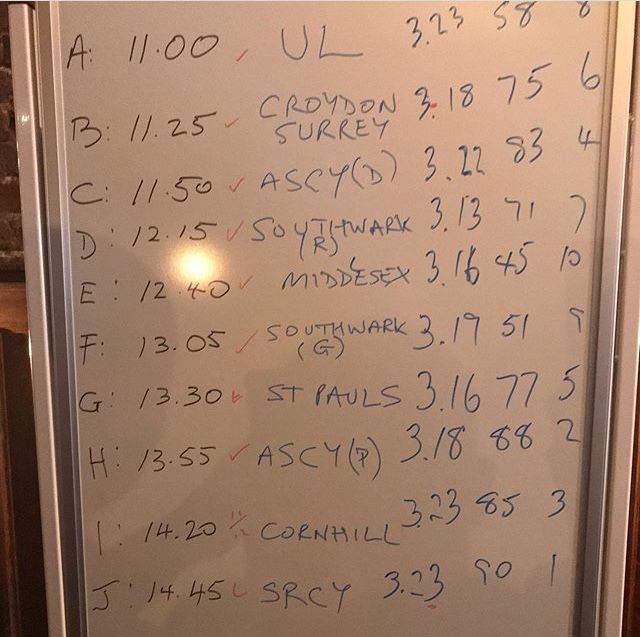 A: 11.00 ✓ UL 3.23 58 8
B: 11.25 ✓ CROYDON SURREY 3.18 75 6
C: 11.50 ✓ ASCY(D) 3.22 83 4
D: 12.15 ✓ SOUTHWARK (R) 3.13 71 7
E: 12.40 ✓ MIDDESEX 3.16 45 10
F: 13.05 ✓ SOUTHWARK (G) 3.19 51 9
G: 13.30 ST PAULS 3.16 77 5
H: 13.55 ✓ ASCY(P) 3.18 88 2
I: 14.20 CORNHILL 3.23 85 3
J: 14.45 ✓ SRCY 3.23 90 1